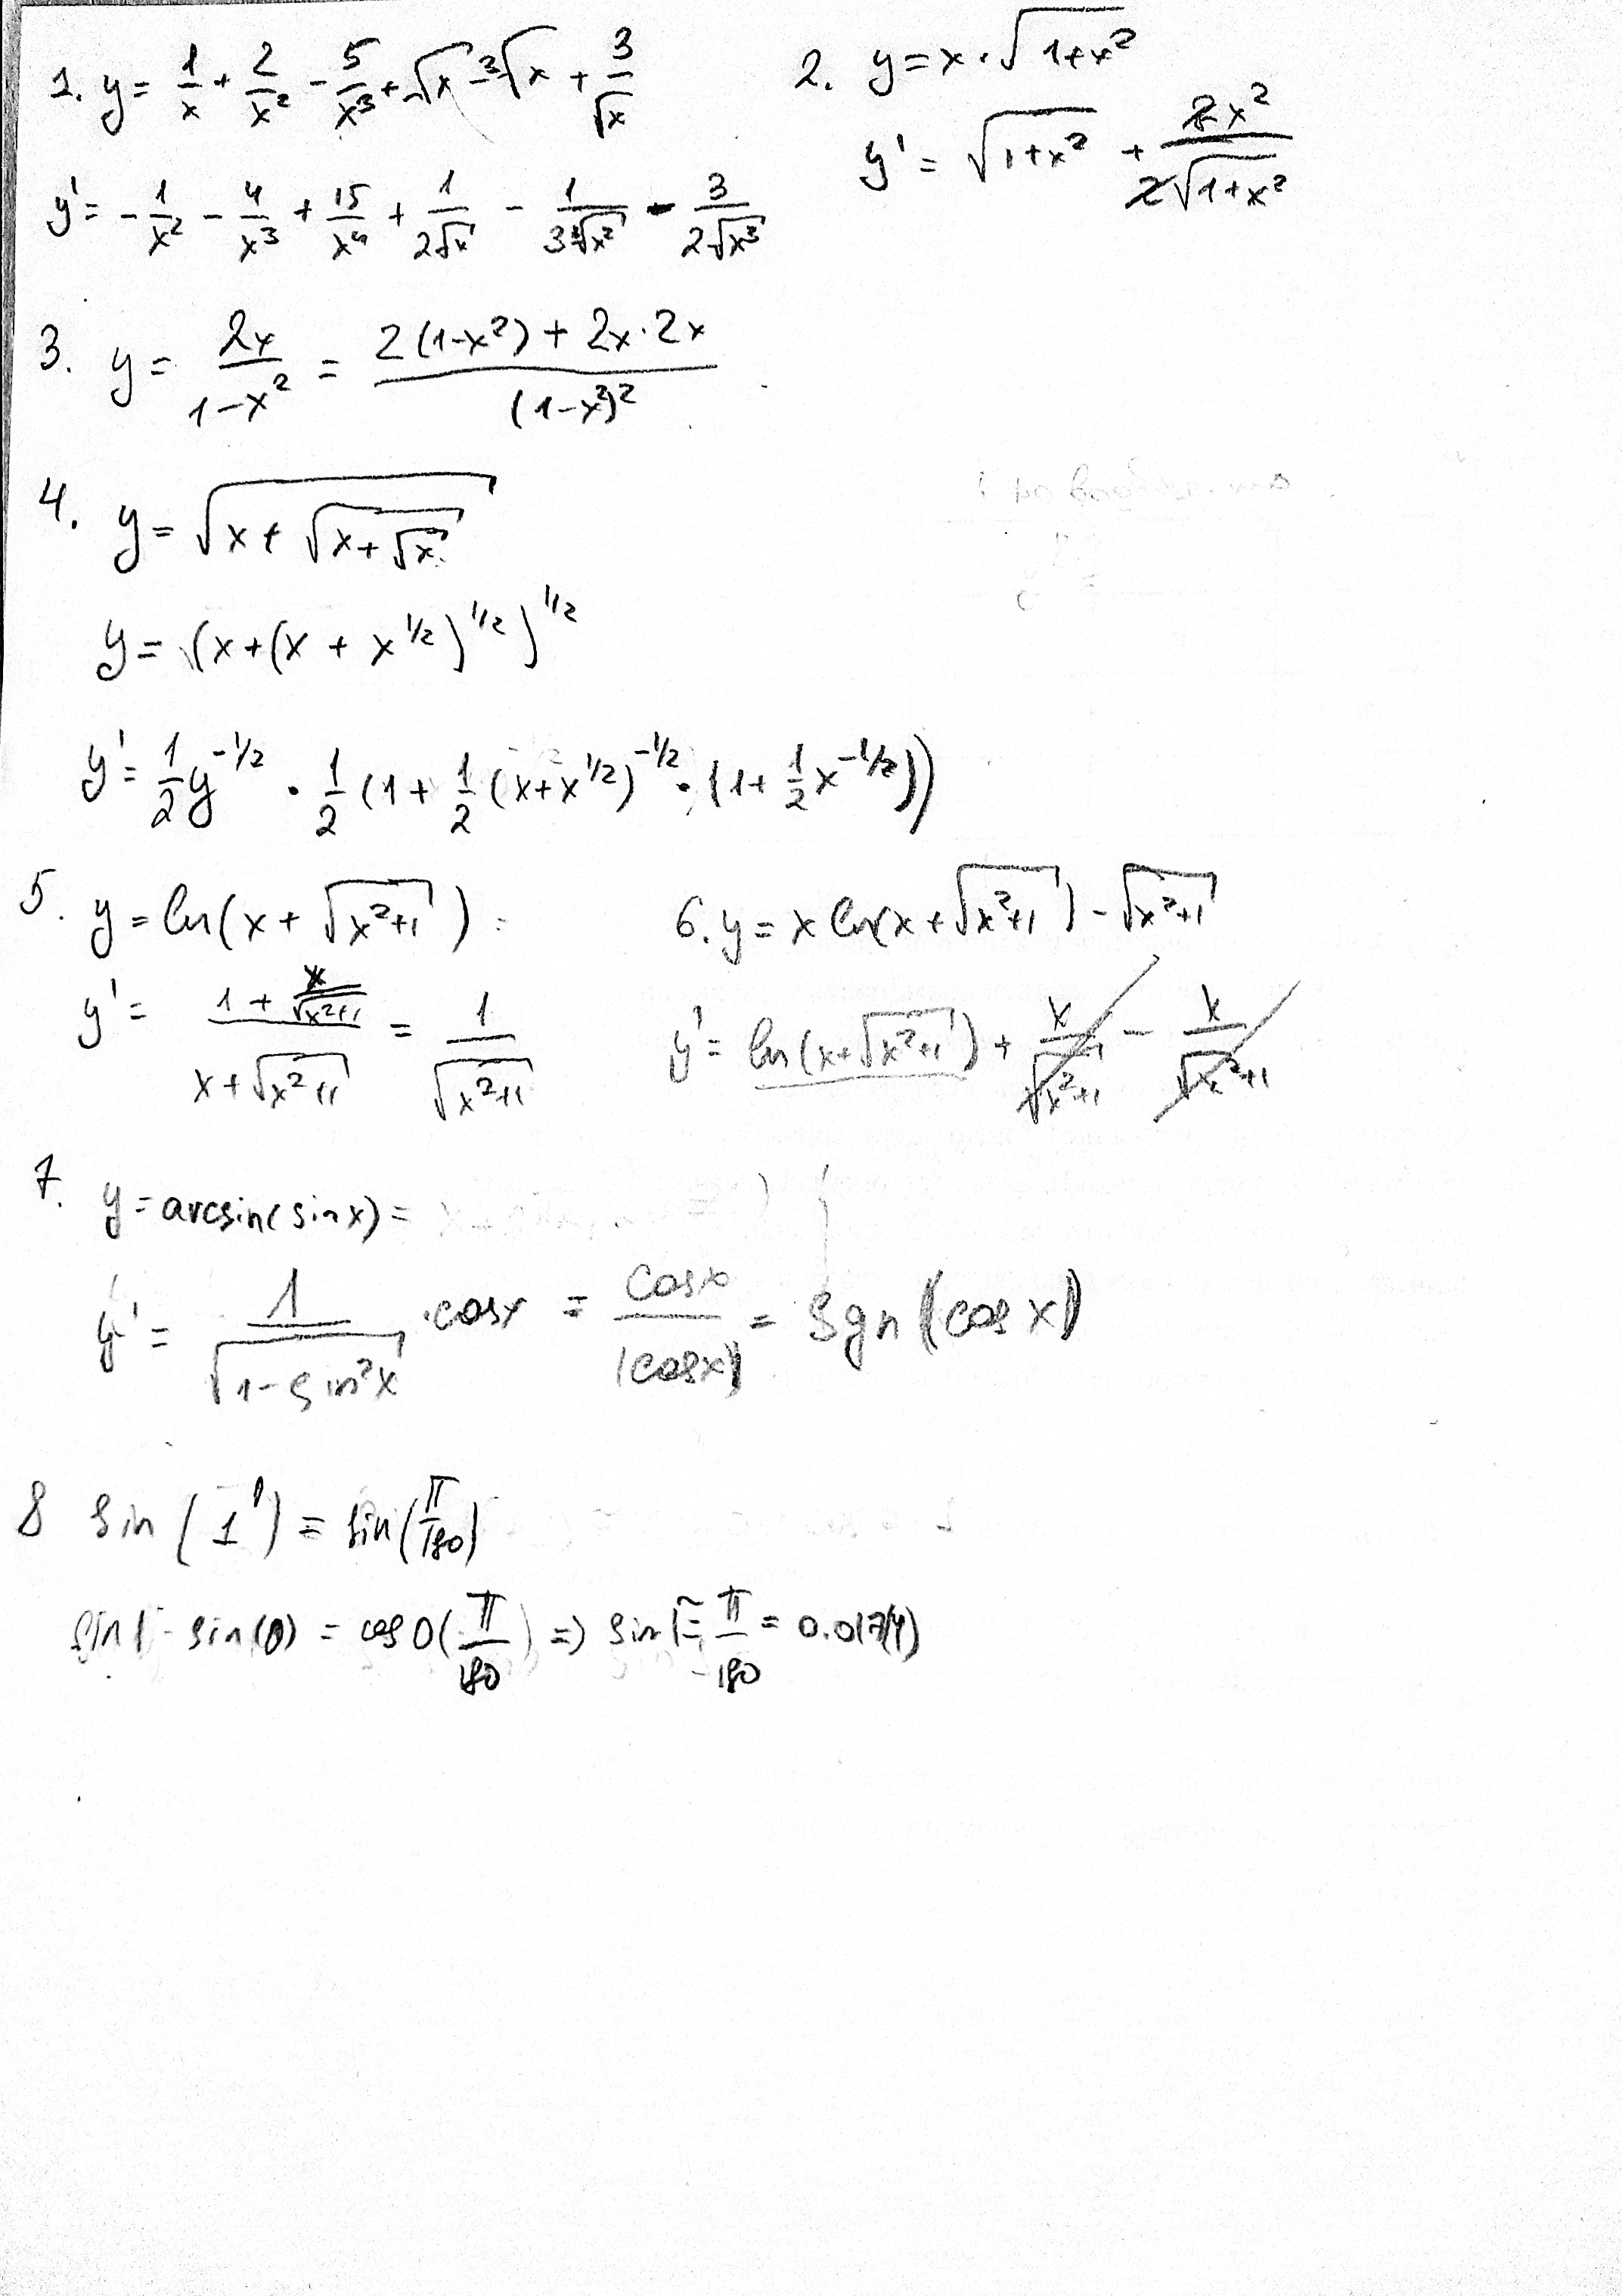 1. y = 1/x + 2/x² - 5/x³ + √x - ³√x + 3/√x
2. y = x · √(1+x²)
y' = √(1+x²) + 2x²/(2√(1+x²))
y' = - 1/x² - 4/x³ + 15/x⁴ + 1/(2√x) - 1/(3³√x²) - 3/(2√x³)
3. y = 2x/(1-x²) = (2(1-x²) + 2x·2x)/(1-x²)²
4. y = √(x + √(x + √x))
y = (x + (x + x^1/2)^1/2)^1/2
y' = 1/2 y^-1/2 · 1/2 (1 + 1/2 (x + x^1/2)^-1/2 · (1 + 1/2 x^-1/2))
5. y = ln(x + √(x²+1)) =
y' = (1 + x/√(x²+1))/(x + √(x²+1)) = 1/√(x²+1)
6. y = x ln(x + √(x²+1)) - √(x²+1)
y' = ln(x + √(x²+1)) + x/√(x²+1) - x/√(x²+1)
7. y = arcsin(sin x) =
y' = 1/√(1 - sin²x) · cos x = cos x/|cos x| = sgn(cos x)
8 sin(1') = sin(π/180)
sin 1 - sin(0) = cos 0(π/180) => sin 1 ≈ π/180 = 0.017(4)